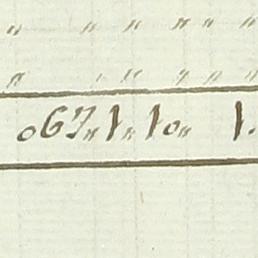 " " " " " "
" " " " " "
067"1"10" 1.